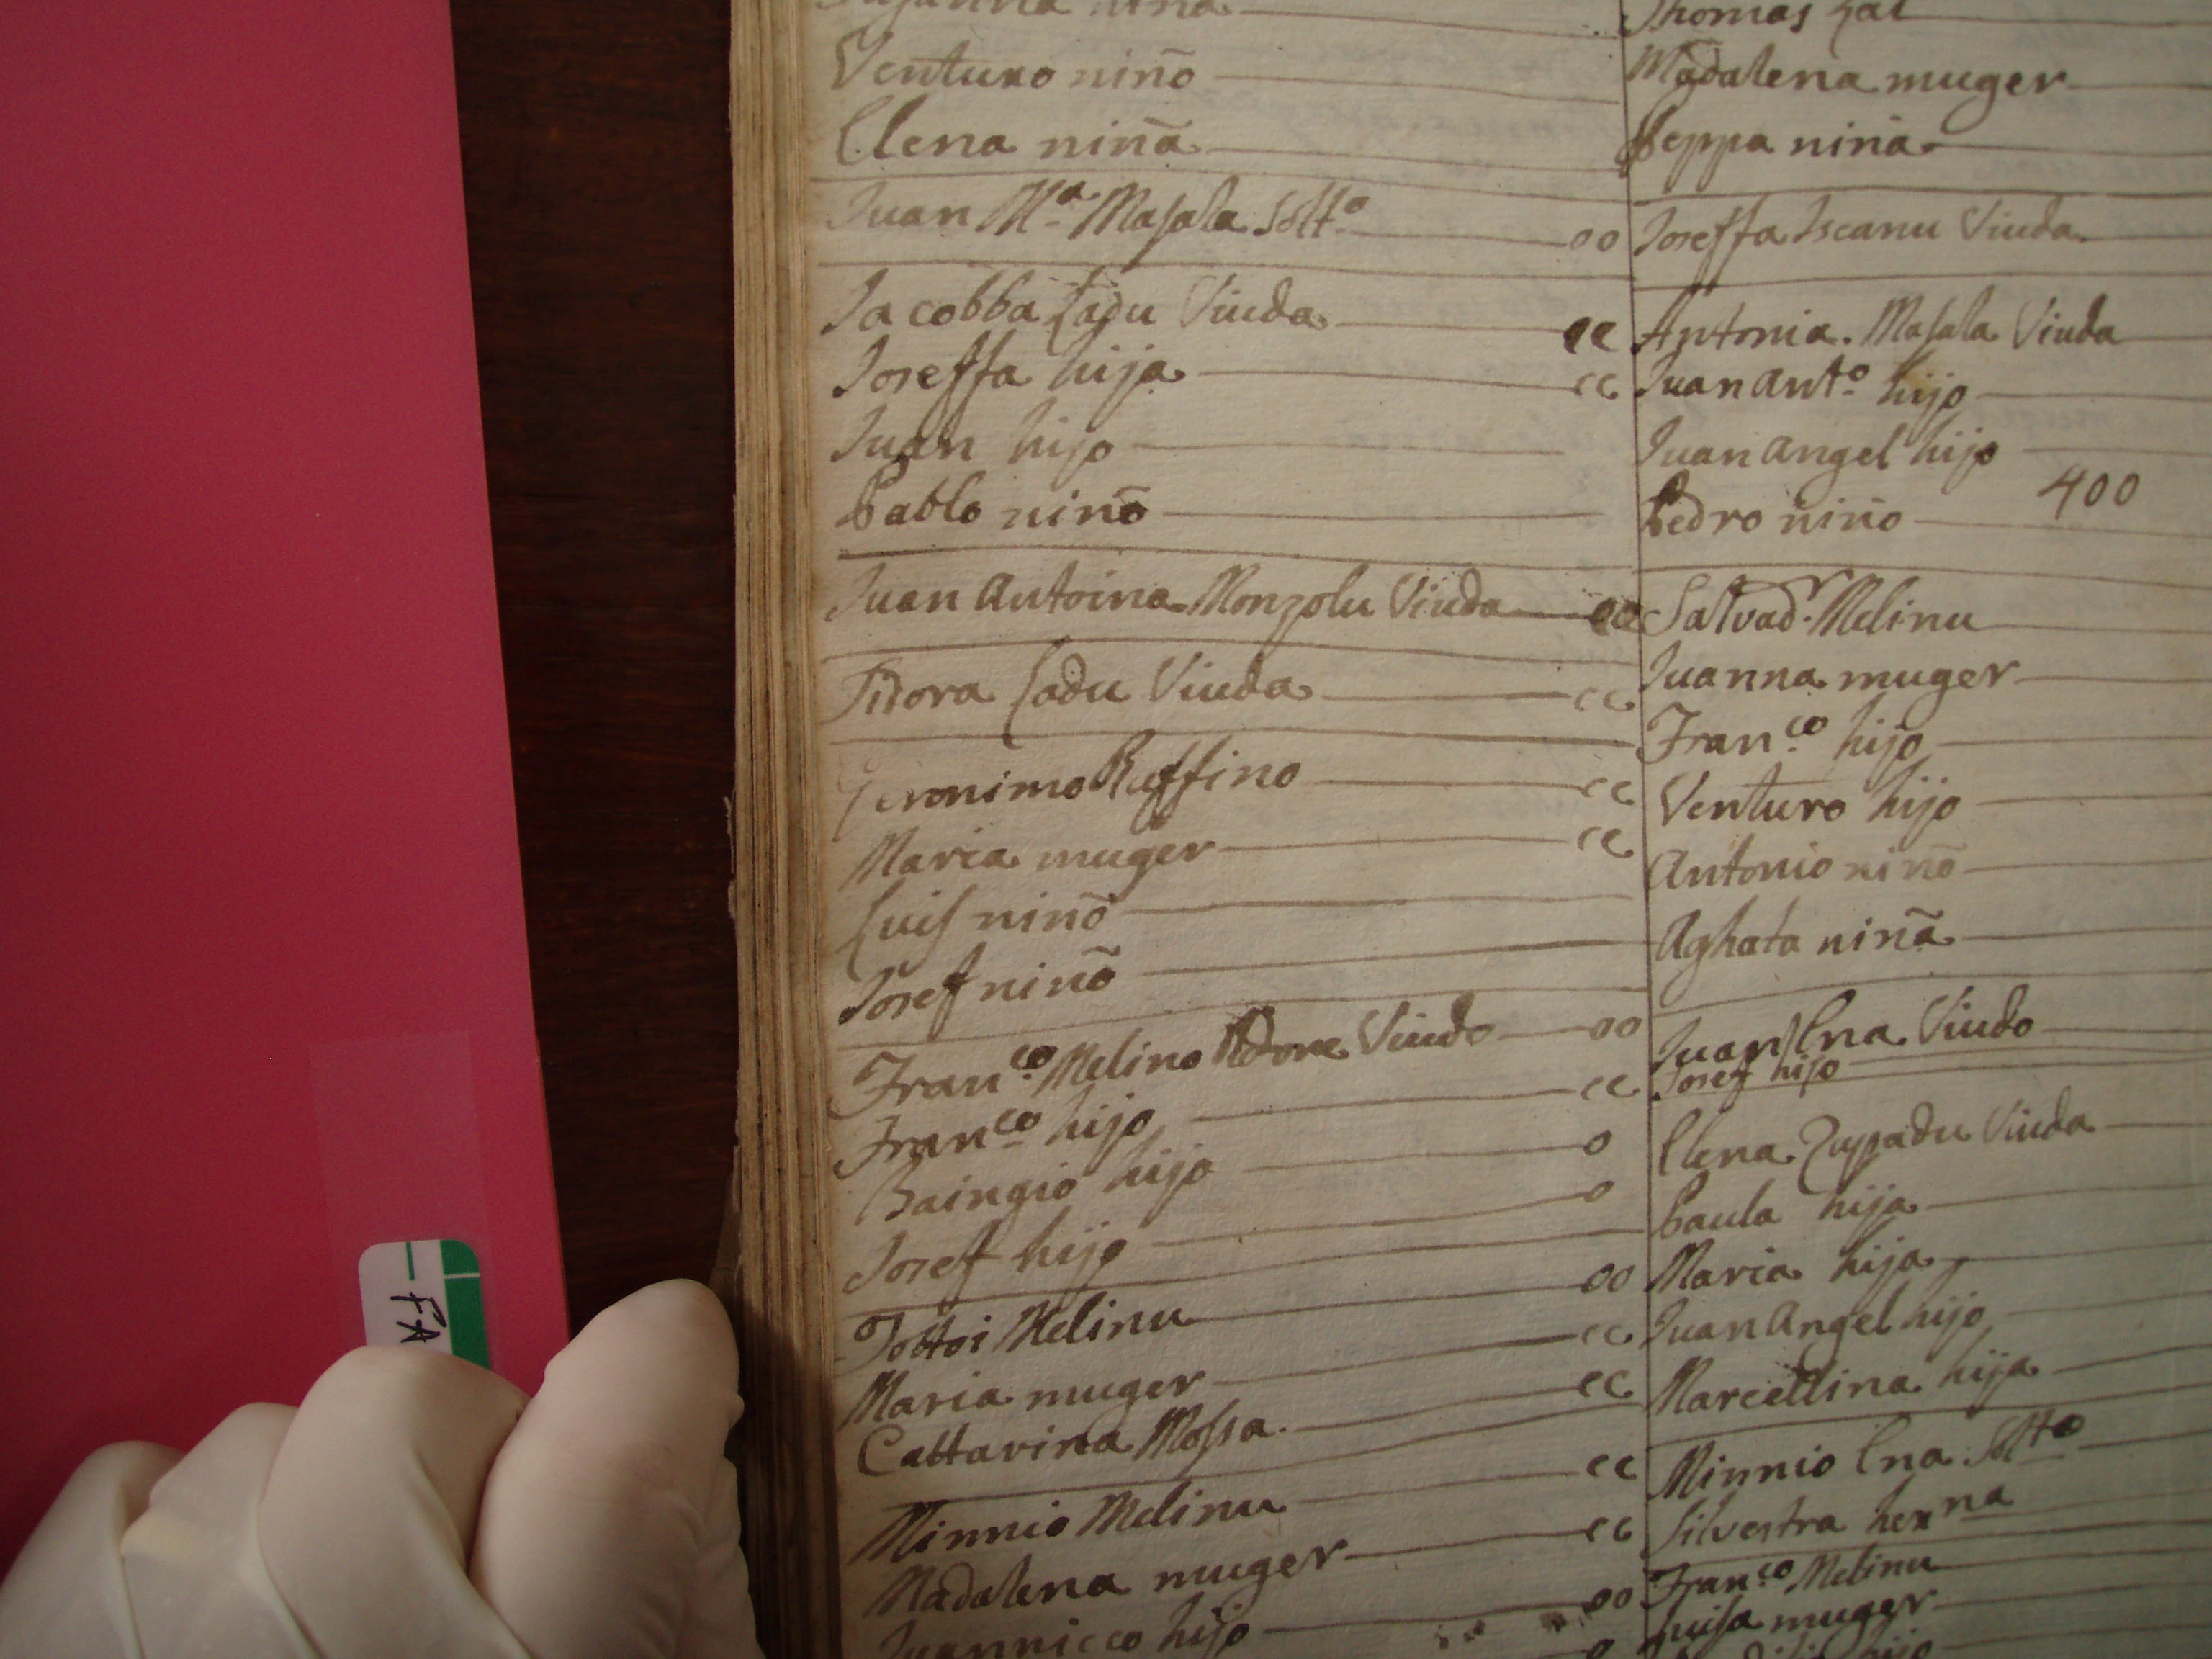 niña
Venturo niño
Elena niña
Juan Mª Masala soltº oo
Jacobba Ladu Viuda cc
Joseffa hija cc
Juan hijo
Pablo niño
Juan Antoina Monzolu Viuda oo
Sidora Ladu Viuda cc
Geronimo Ruffino cc
Maria muger cc
Luis niño
Josef niño
Franᶜᵒ Melino Viudo oo
Franᶜᵒ hijo cc
Baingio hijo o
Josef hijo o
Tottoi Melinu oo
Maria muger cc
Cattarina Mossa cc
Minnio Melinu cc
Madalena muger cc
Juannicco hijo oo
Thomas
Madalena muger
Peppa niña
Joseffa Iscanu Viuda
Antonia Masala Viuda
Juan Antº hijo
Juan Angel hijo
Pedro niño 400
Salvadʳ Melinu
Juanna muger
Franᶜᵒ hijo
Venturo hijo
Antonio niño
Aghata niña
Juan Ena Viudo
Josef hijo
Elena Zuppadu Viuda
Paula hija
Maria hija
Juan Angel hijo
Marcellina hija
Minnio Ena soltº
Silvestra herⁿᵃ
Franᶜᵒ Melinu
Luisa muger
hijo
FA